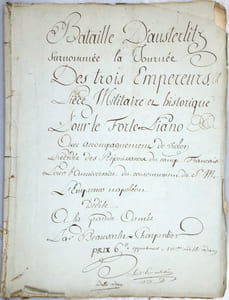 Bataille D'austerlitz
surnommée la Journée
Des trois Empereurs
Pièce Militaire et historique
Pour le Forte-Piano
Avec accompagnement de Violon
Précédée des Réjouissances du camp Français
Pour l'Anniversaire du couronnement de S. M.
L'Empereur napoléon
Dédiée
A la grande Armée
Par Beauvarlet Charpentier
prix 6